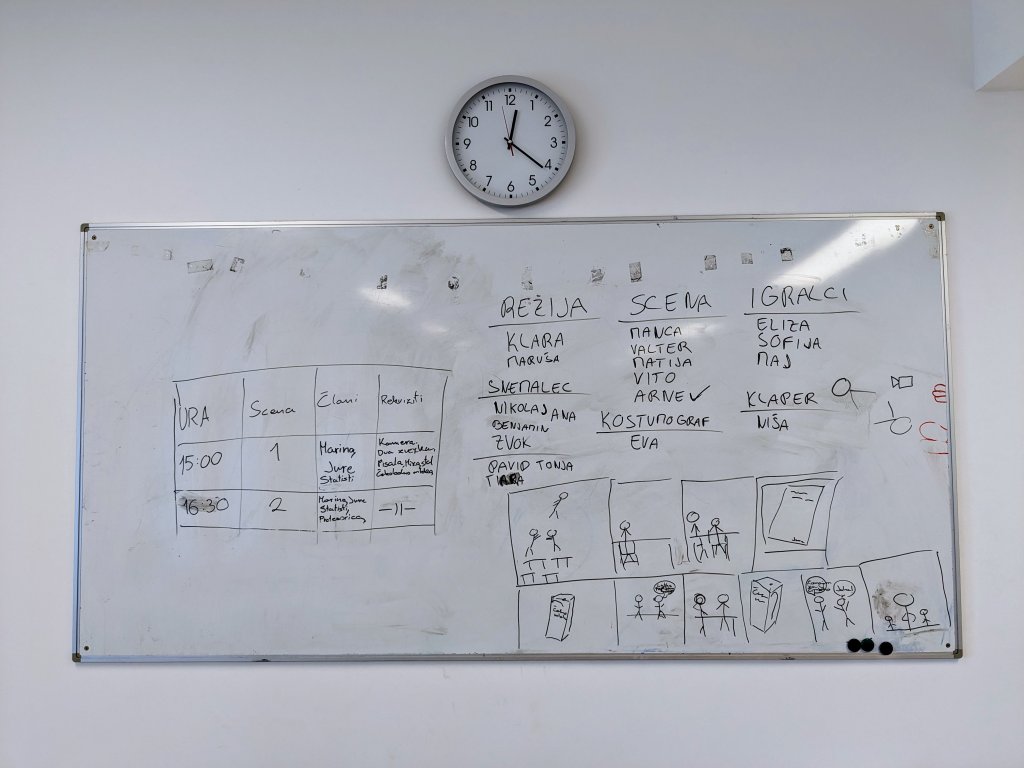 12
1
2
3
4
5
6
7
8
9
10
11
REŽIJA
KLARA
MARUŠA
SNEMALEC
NIKOLAJ ANA
BENJAMIN
ZVOK
DAVID TONJA
TIARA
SCENA
MANCA
VALTER
MATIJA
VITO
ARNE ✓
KOSTUMOGRAF
EVA
IGRALCI
ELIZA
SOFIJA
MAJ
KLAPER
NIŠA
URA Scena Člani Rekviziti
15:00 1
Marina,
Jure
Statisti
Kamera,
Dva zvezka,
16:30 2
Marina, Jure
Statisti,
Profesorica,
—||—